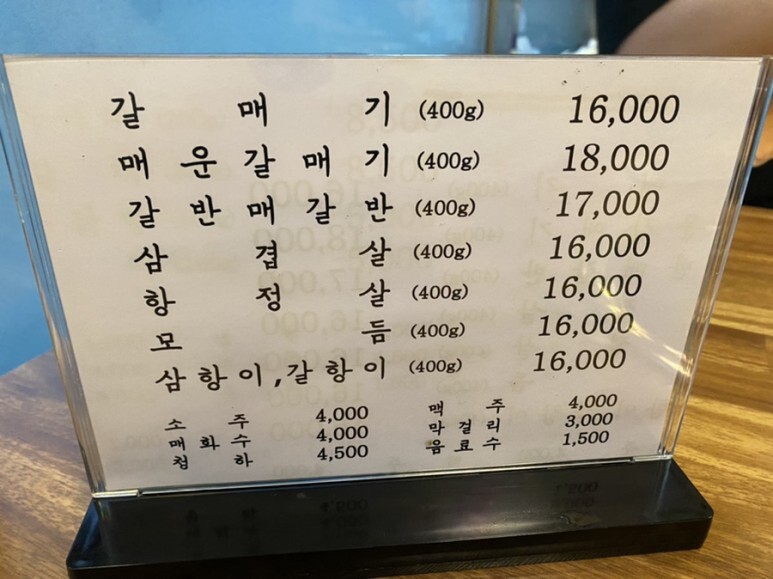 갈매기 (400g) 16,000
매운갈매기 (400g) 18,000
갈반매갈반 (400g) 17,000
삼겹살 (400g) 16,000
항정살 (400g) 16,000
모듬 (400g) 16,000
삼항이,갈항이 (400g) 16,000
소주 4,000 맥주 4,000
매화수 4,000 막걸리 3,000
첩하 4,500 음료수 1,500